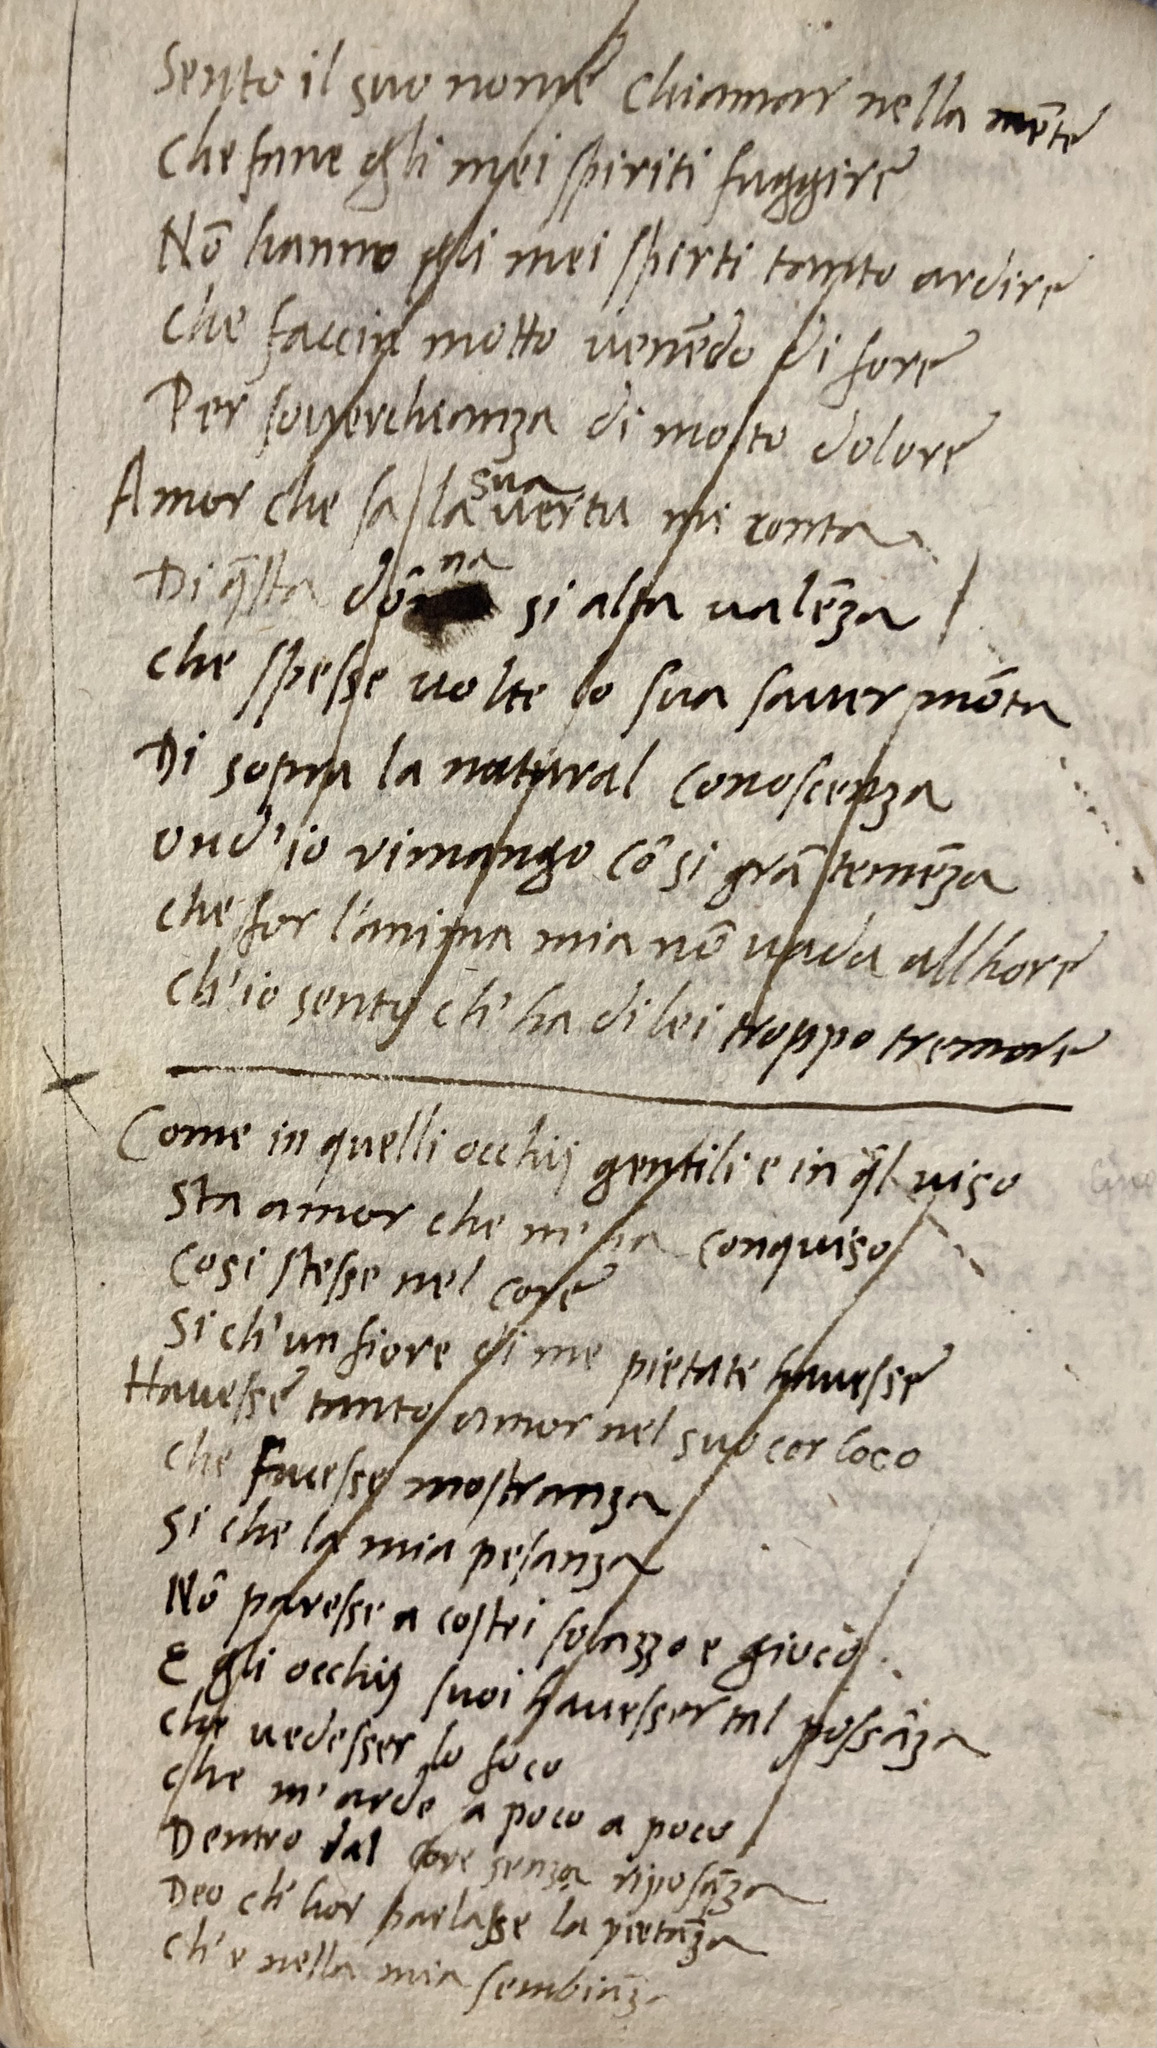 Sento il suo nome chiamar nella mẽte
che fane gli mei spiriti fuggire
Nõ hanno gli mei spirti tanto ardire
che faccin motto venẽdo di fore
Per soverchianza di molto dolore
Amor che sa la sua vertu mi conta
Di q̃sta dõna si alta valẽza
che spesse volte lo sua saver mõta
Di sopra la natural conoscenza
ond'io rimango cõ si grã temẽza
che for l'anima mia nõ vada allhore
ch'io sento ch'ha di lei troppo tremore
Come in quelli occhij gentili e in q̃l viso
sta amor che m'ha conquiso
cosi stesse nel core
Si ch'un fiore di me pietate havesse
Havesse tanto amor nel suo cor loco
che facesse mostranza
si che la mia pesanza
Nõ paresse a costei solazzo e giuco
e gli occhij suoi havesser tal possãza
che vedesser lo foco
che m'arde a poco a poco
Dentro dal core senza riposãza
Deo ch'hor parlasse la pietãza
ch'e nella mia sembiãz